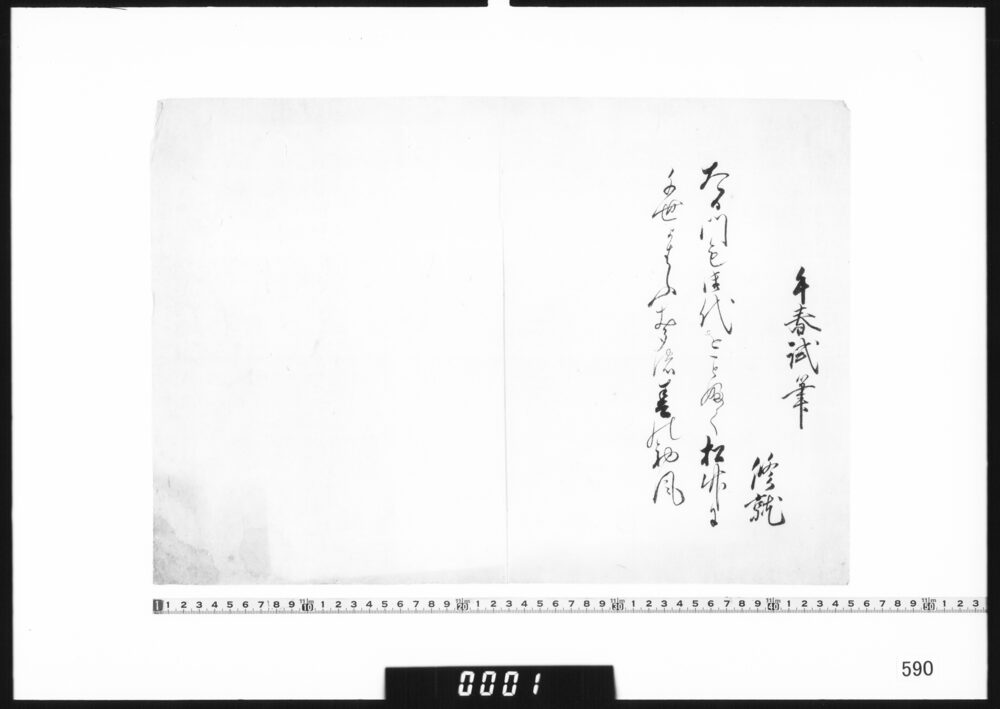 午春試筆
脩就
門も御代をことふく松竹に
千世よはふなる春の初風
1 1 2 3 4 5 6 7 8 9 10 1 2 3 4 5 6 7 8 9 20 1 2 3 4 5 6 7 8 9 30 1 2 3 4 5 6 7 8 9 40 1 2 3 4 5 6 7 8 9 50 1 2 3
590
0001